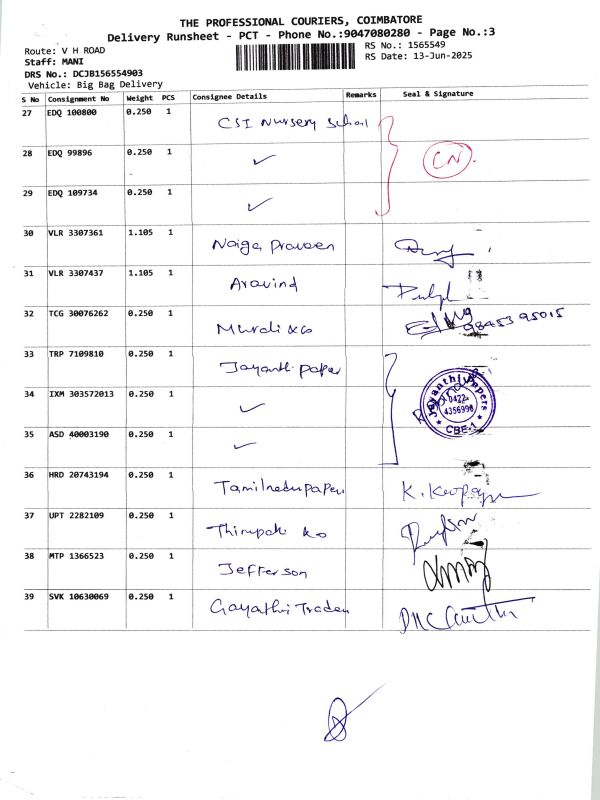 THE PROFESSIONAL COURIERS, COIMBATORE
Delivery Runsheet - PCT - Phone No.:9047080280 - Page No.:3
Route: V H ROAD
RS No.: 1565549
Staff: MANI
RS Date: 13-Jun-2025
DRS No.: DCJB156554903
Vehicle: Big Bag Delivery
S No Consignment No Weight PCS Consignee Details Remarks Seal & Signature
27 EDQ 100800 0.250 1 CSI Nursery School
28 EDQ 99896 0.250 1 ✓ CN
29 EDQ 109734 0.250 1 ✓
30 VLR 3307361 1.105 1 Naiga Praveen
31 VLR 3307437 1.105 1 Aravind
32 TCG 30076262 0.250 1 Murali & co 98453 95015
33 TRP 7109810 0.250 1 Jayanthi paper
34 IXM 303572013 0.250 1 ✓ Jayanthi Papers 0422- 4356998 CBE-1
35 ASD 40003190 0.250 1 ✓
36 HRD 20743194 0.250 1 Tamilnadu papers
37 UPT 2282109 0.250 1 Thirupathi & co
38 MTP 1366523 0.250 1 Jefferson
39 SVK 10630069 0.250 1 Gayathri Traders